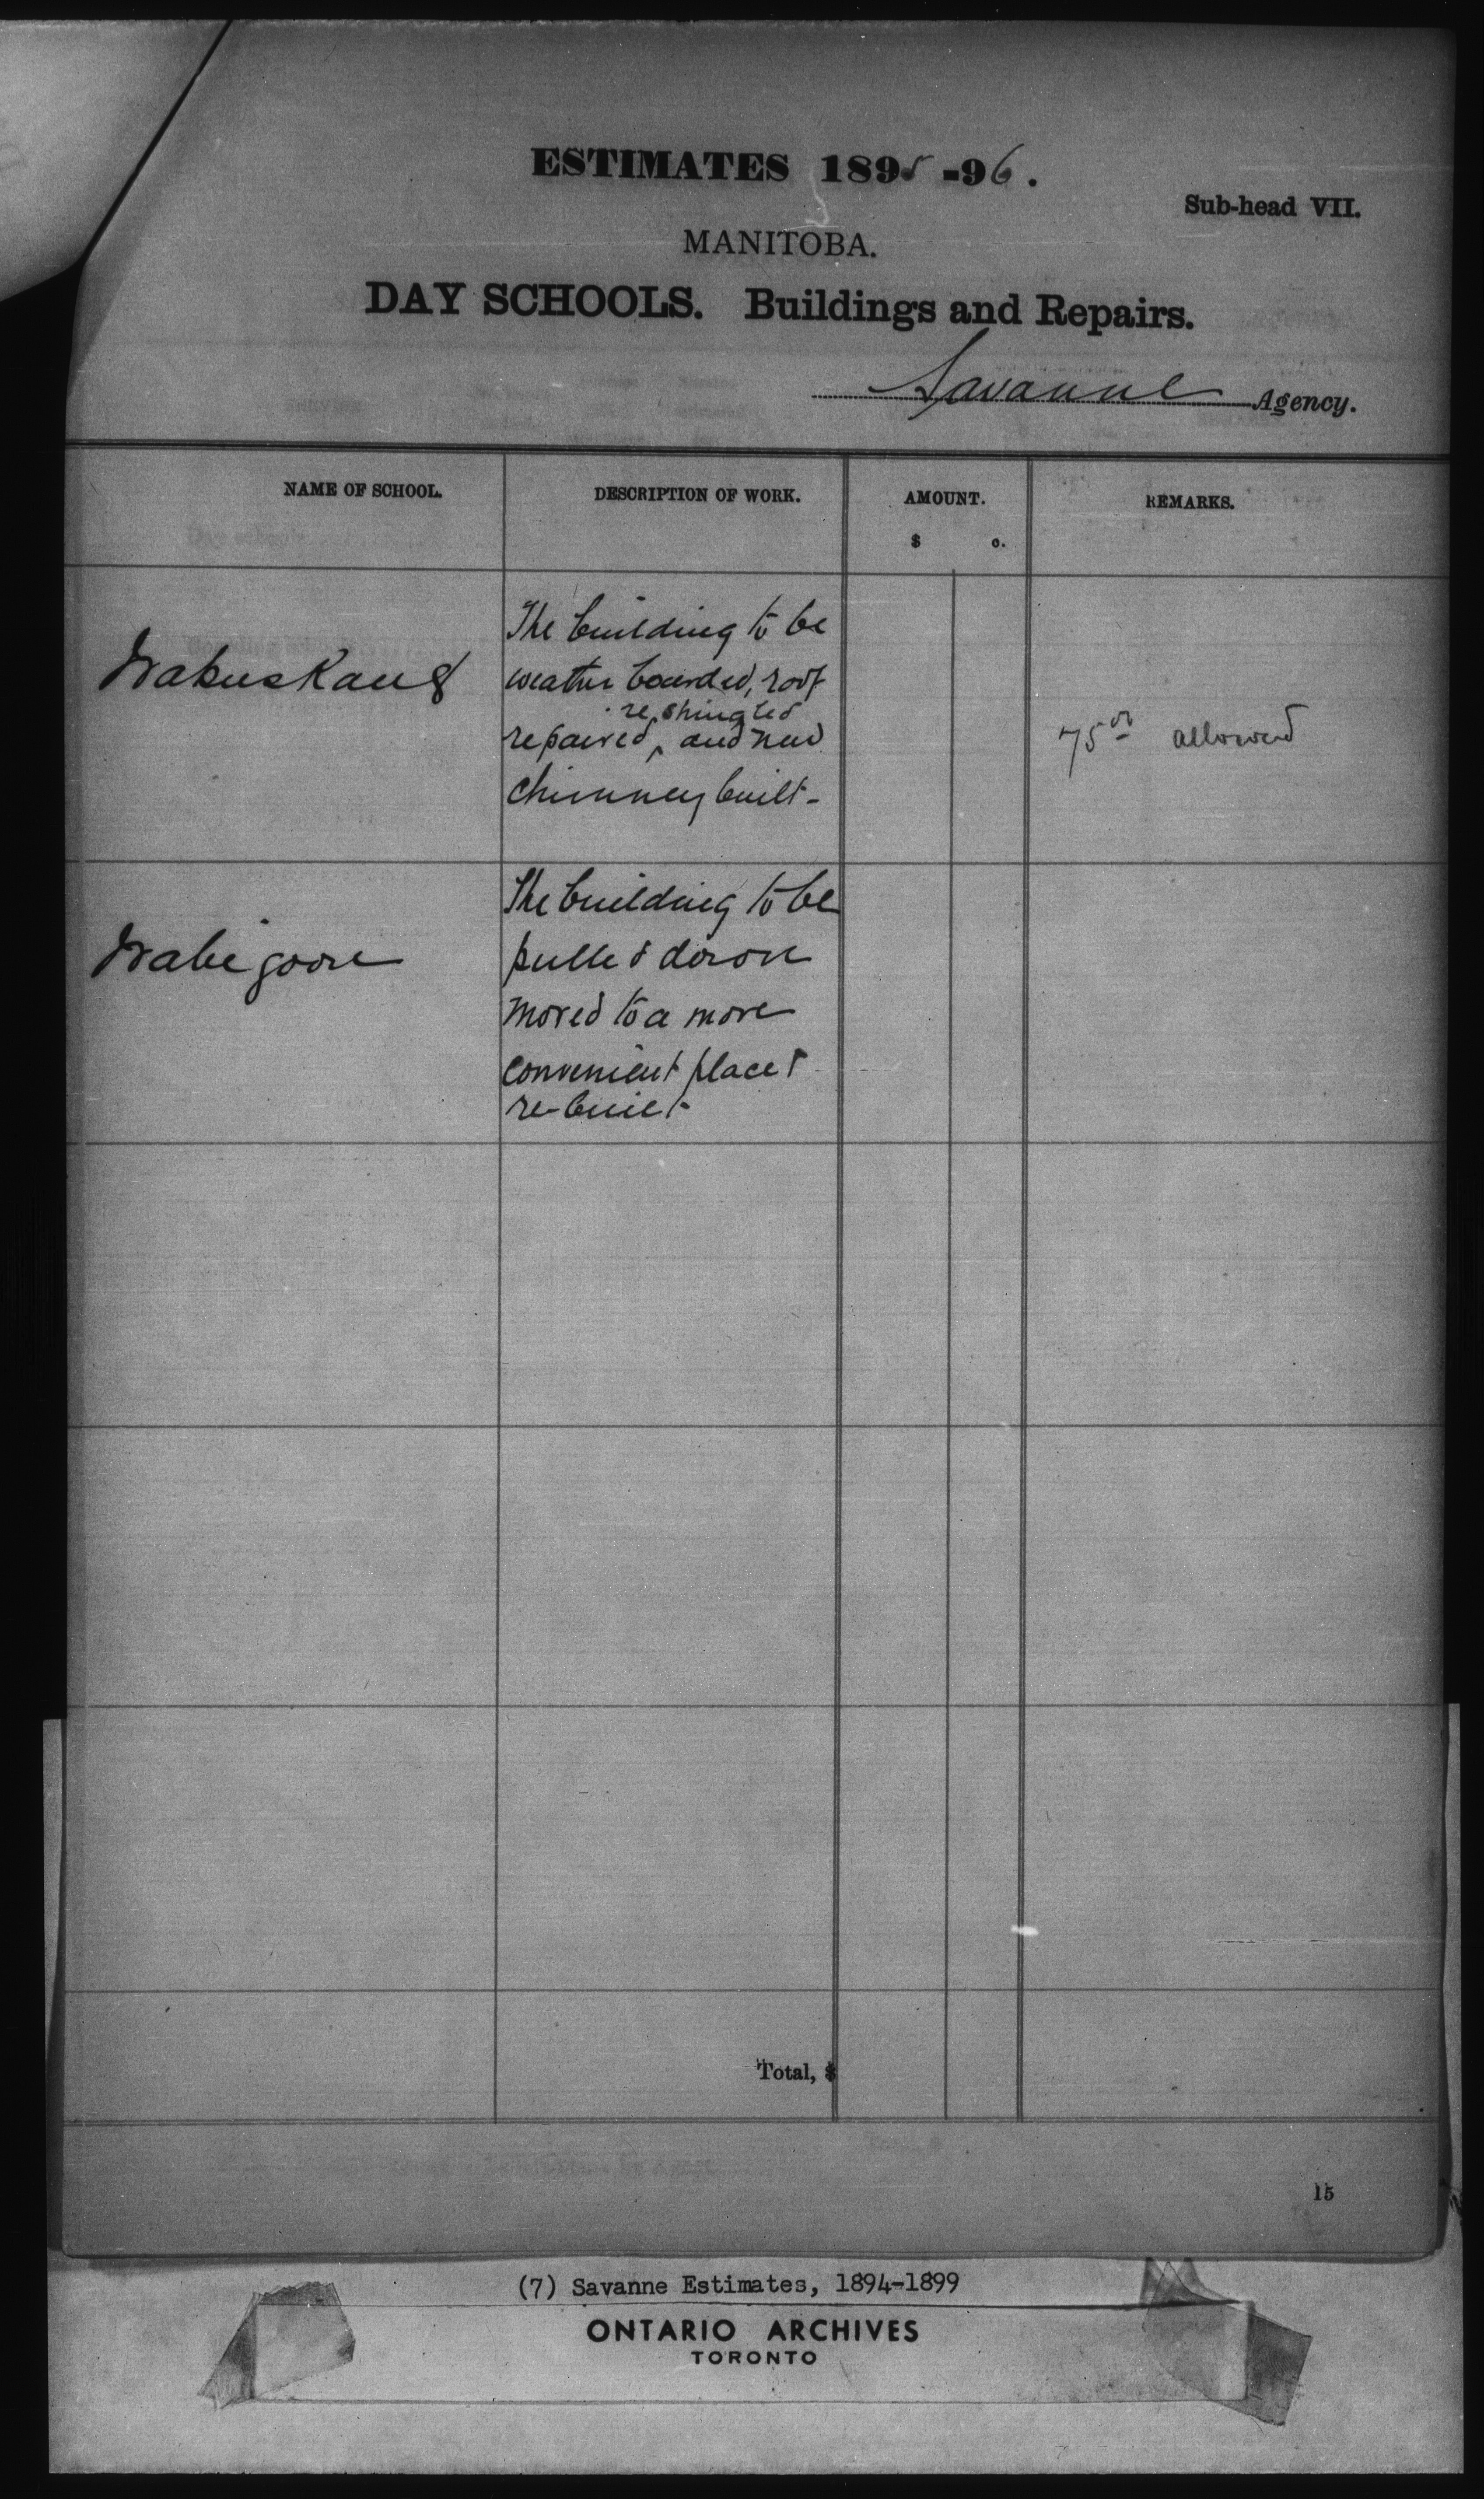 ESTIMATES 1895-96.
Sub-head VII.
MANITOBA.
DAY SCHOOLS. Buildings and Repairs.
Savanne Agency.
NAME OF SCHOOL. DESCRIPTION OF WORK. AMOUNT. REMARKS.
$ c.
The building to be
Wabuskang weather boarded, roof
re shingled
repaired, and new 75 00 allowed
chimney built -
The building to be
Wabigoon pulled down
moved to a more
convenient place &
re-built
Total, $
15
(7) Savanne Estimates, 1894-1899
ONTARIO ARCHIVES
TORONTO